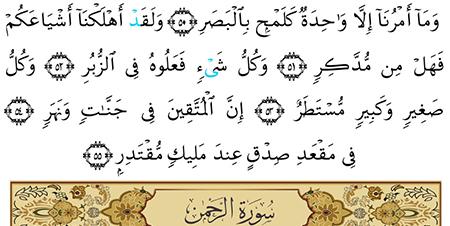 وَمَآ أَمْرُنَآ إِلَّا وَٰحِدَةٌ كَلَمْحٍۭ بِٱلْبَصَرِ ۝٥٠ وَلَقَدْ أَهْلَكْنَآ أَشْيَاعَكُمْ
فَهَلْ مِن مُّدَّكِرٍ ۝٥١ وَكُلُّ شَىْءٍ فَعَلُوهُ فِى ٱلزُّبُرِ ۝٥٢ وَكُلُّ
صَغِيرٍ وَكَبِيرٍ مُّسْتَطَرٌ ۝٥٣ إِنَّ ٱلْمُتَّقِينَ فِى جَنَّٰتٍ وَنَهَرٍ ۝٥٤
فِى مَقْعَدِ صِدْقٍ عِندَ مَلِيكٍ مُّقْتَدِرٍۭ ۝٥٥
سُورَةُ الرَّحْمٰن